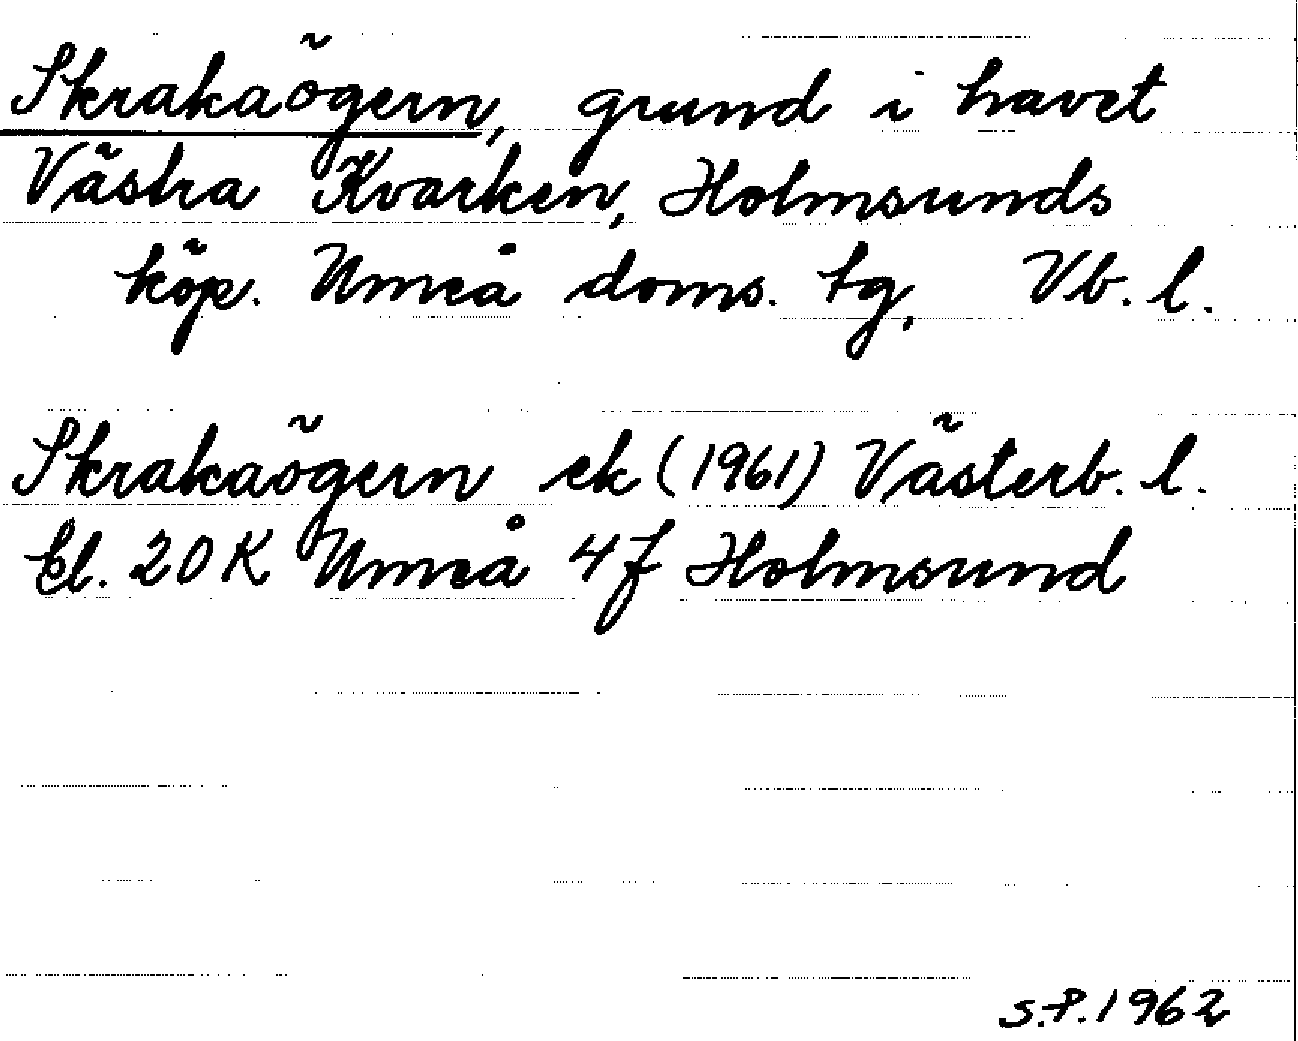 Skrakaögern, grund i havet
Västra Kvarken, Holmsunds
köp. Umeå doms. tg, Vb. l.
Skrakaögern ek (1961) Västerb. l.
bl. 20 K Umeå 4f Holmsund
S.P. 1962